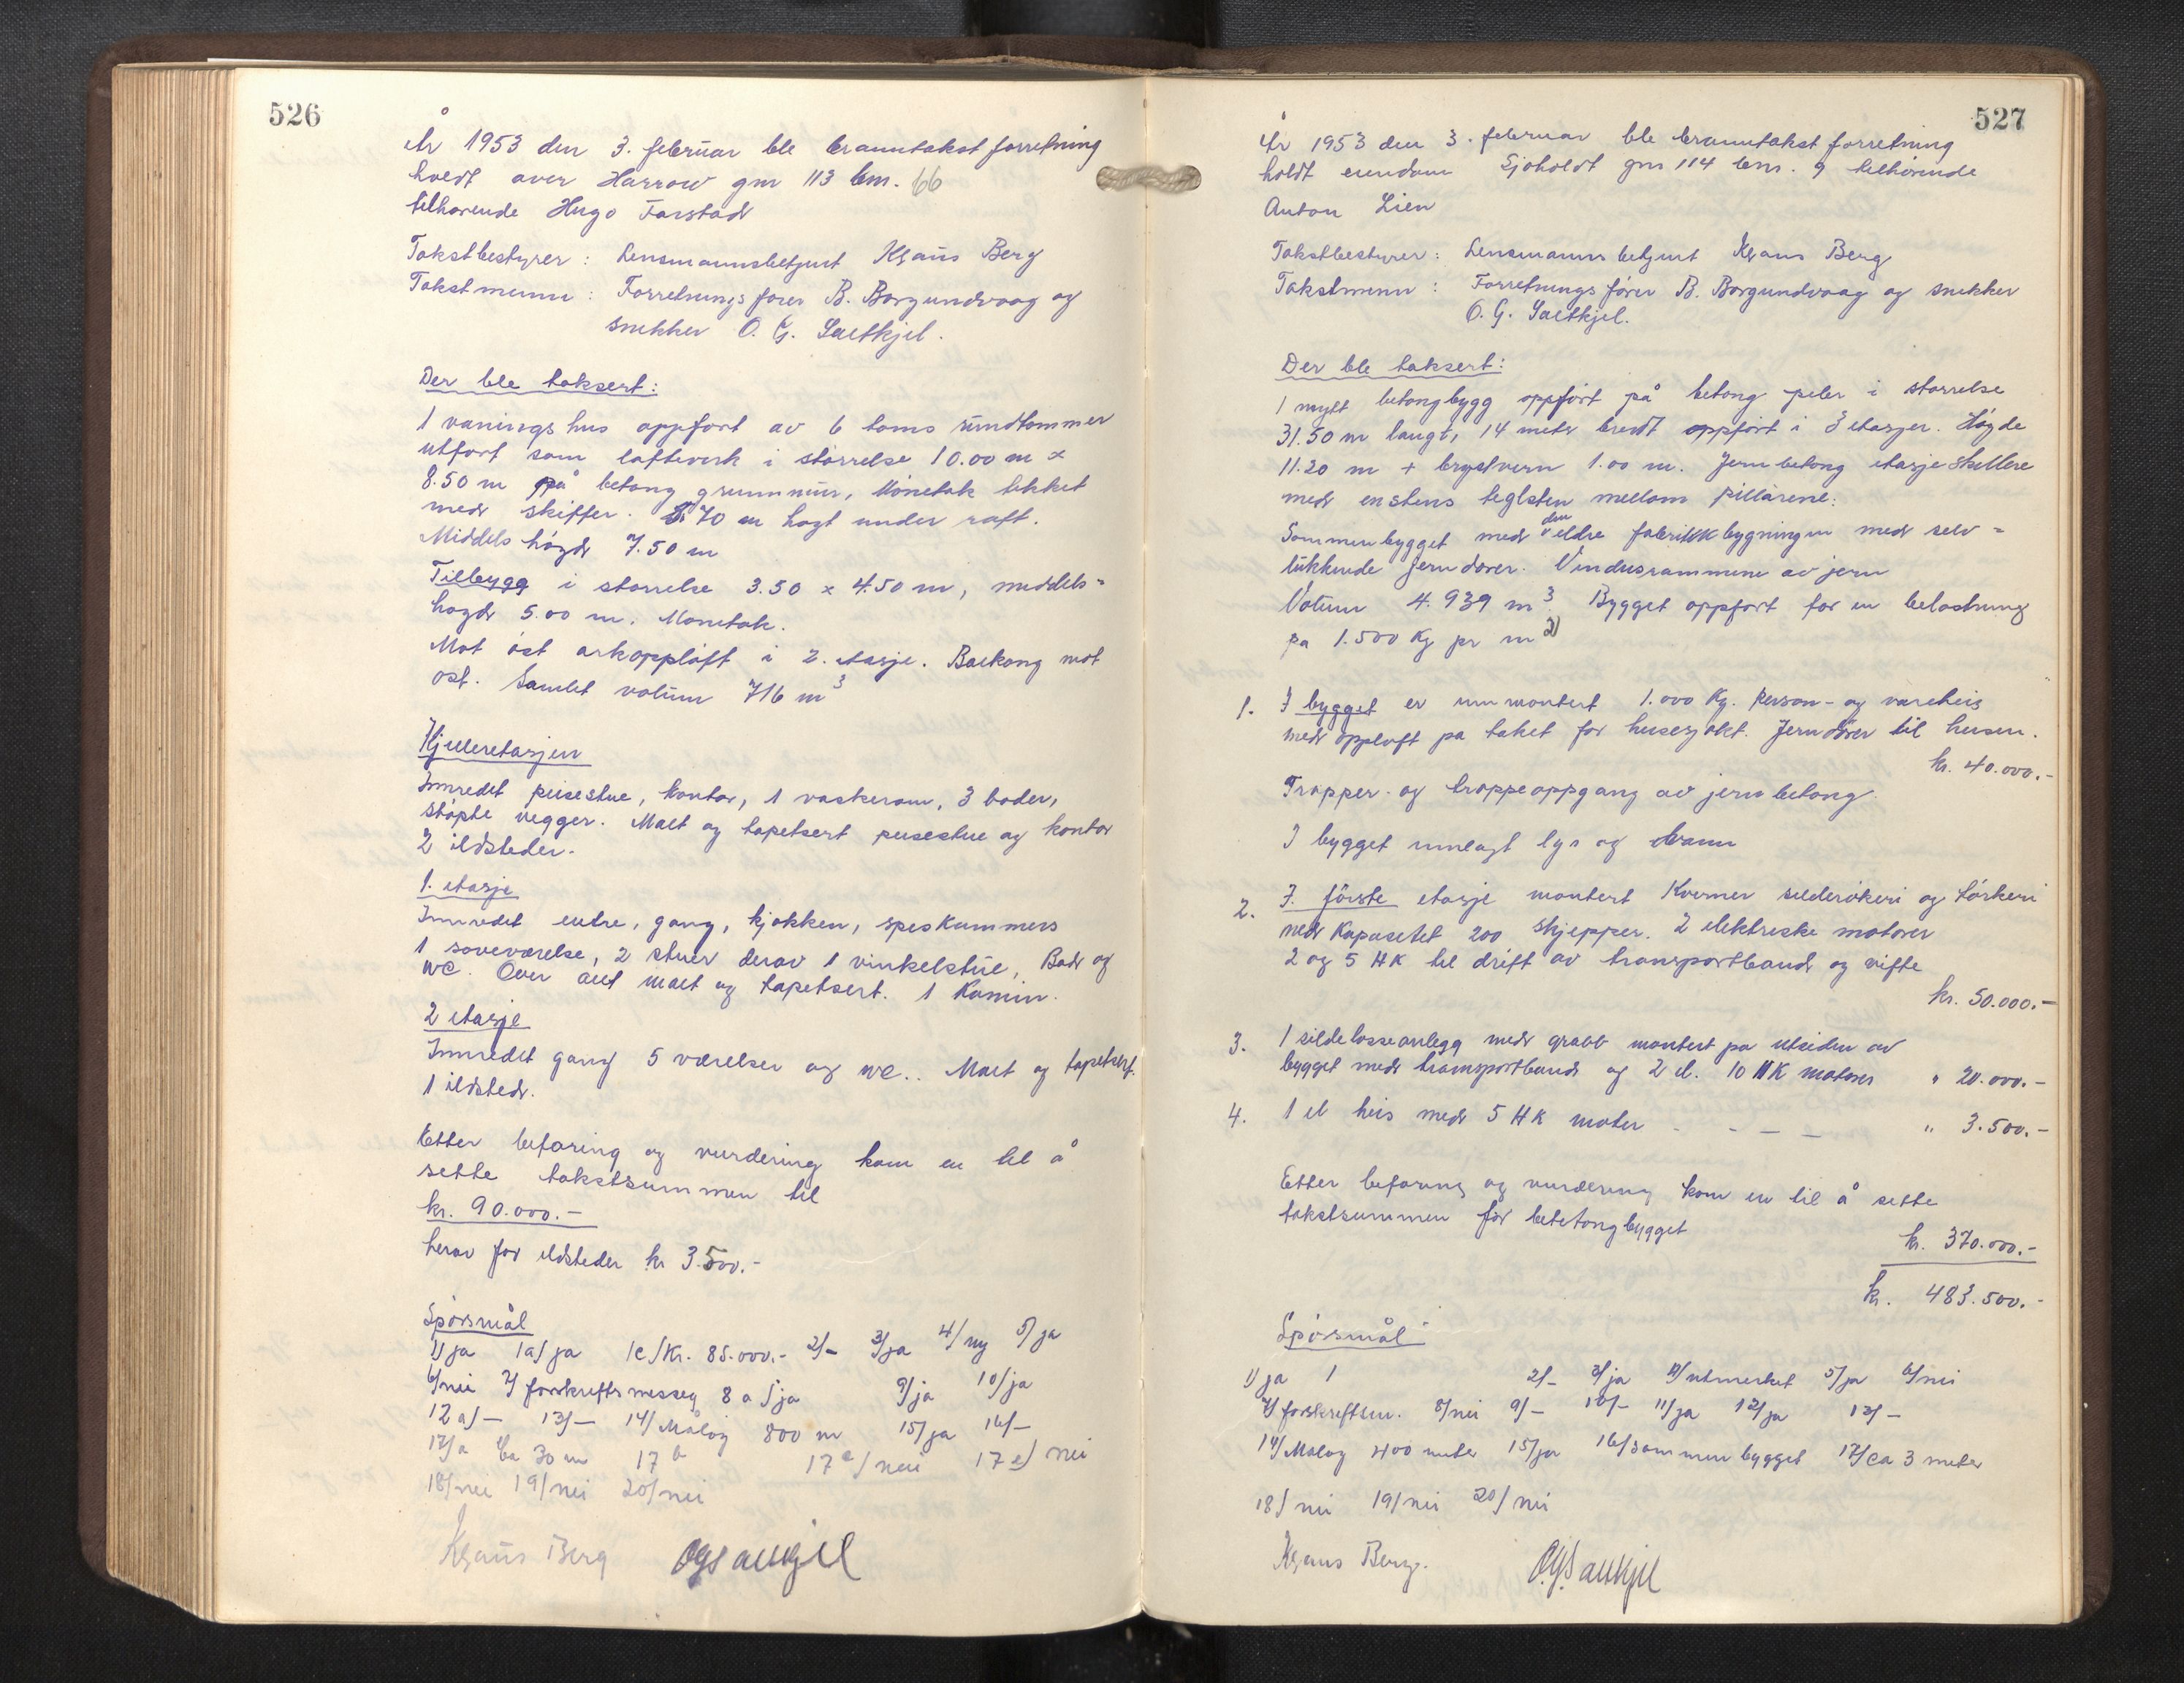 526
År 1953 den 3. februar ble branntakst forretning
holdt over Harrow gnr 113 bnr. 66
tilhørende Hugo Farstad
Takstbestyrer : Lensmannsbetjent Klaus Berg
Takstmenn : Forretningsfører B. Borgundvaag og
snekker O. G. Saetkjel.
Der ble taksert:
1 vånings hus oppført av 6 toms rundtømmer
utført som lafteverk i størrelse 10.00 m x
8.50 m på betong grunnmur, Mønetak tekket
med skiffer. 5.70 m høgt under raft.
Middels høgd 7.50 m
Tilbygg i størrelse 3.50 x 4.50 m, middels-
høgd 5.00 m. Mønetak.
Mot øst arkoppløft i 2. etasje. Balkong mot
øst. Samlet volum 716 m3
Kjelleretasjen
Innredet peisestue, kontor, 1 vaskerom, 3 boder,
støpte vegger. Malt og tapetsert peisestue og kontor
2 ildsteder.
1. etasje
Innredet entre, gang, kjøkken, spiskammers
1 soveværelse, 2 stuer derav 1 vinkelstue, Bad og
WC. Over alt malt og tapetsert. 1 Kamin.
2 etasje
Innredet gang 5 værelser og WC.. Malt og tapetsert.
1 ildsted.
Etter befaring og vurdering kom en til å
sette takstsummen til
kr. 90.000.-
herav for ildsteder kr 3.500.-
Spørsmål
1) ja 1a/ ja 1c/ Kr. 85.000.- 2/- 3/ja 4/ ny 5/ ja
6/nei 7/ forskriftsmesseg 8 a/ ja 9/ja 10/ja
12 a/ - 13/- 14/ Måløy 800 m 15/ ja 16/-
17/a Ca 30 m 17 b 17 c/ nei 17 e/ nei
18/nei 19/nei 20/nei
Klaus Berg OGSaetkjel
527
År 1953 den 3. februar ble branntakst forretning
holdt eiendom Sjøholdt gnr 114 bnr. 9 tilhørende
Anton Lien
Takstbestyrer : Lensmanns betjent Klaus Berg
Takstmenn : Forretnings fører B. Borgundvaag og snekker
O. G. Saetkjel.
Der ble taksert:
1 nytt betongbygg oppført på betong peler i størrelse
31.50 m langt, 14 meter bredt oppført i 3 etasjer. Høgde
11.20 m + brystvern 1.00 m. Jernbetong etasjeskillere
med enstens teglsten mellom pillarene.
Sammenbygget med den eldre fabrikkbygningen med selv-
lukkende jerndører. Vindusrammene av jern
Volum 4.939 m3. Bygget oppført for en belastning
på 1.500 Kg pr m2)
1. I bygget er innmontert 1.000 Kg. person- og vareheis
med oppløft på taket for heisesjakt. Jerndører til heisen.
kr. 40.000.-
Trapper- og trappeoppgang av jernbetong.
I bygget innlagt lys og vann
2. I. første etasje montert Kverner silderøkeri og tørkeri
med Kapasitet 200 skjepper. 2 elektriske motorer
2 og 5 HK til drift av transportband og vifte
kr. 50.000.-
3. 1 silde losseanlegg med grabb montert på utsiden av
bygget med transportband og 2 el. 10 HK motorer " 20.000.-
4. 1 el heis med 5 HK motor - - - - " 3.500.-
Etter befaring og vurdering kom en til å sette
takstsummen for betetongbygget
kr. 370.000.-
kr. 483.500.-
Spørsmål
1) ja 1 2/- 3/ja 4/utmerket 5/ja 6/nei
7/ forskriftsm. 8/nei 9/- 10/- 11/ja 12/ja 13/-
14/Måløy 400 meter 15/ja 16/sammenbygget 17/ca 3 meter
18/ nei 19/nei 20/ nei
Klaus Berg. O.G.Saetkjel